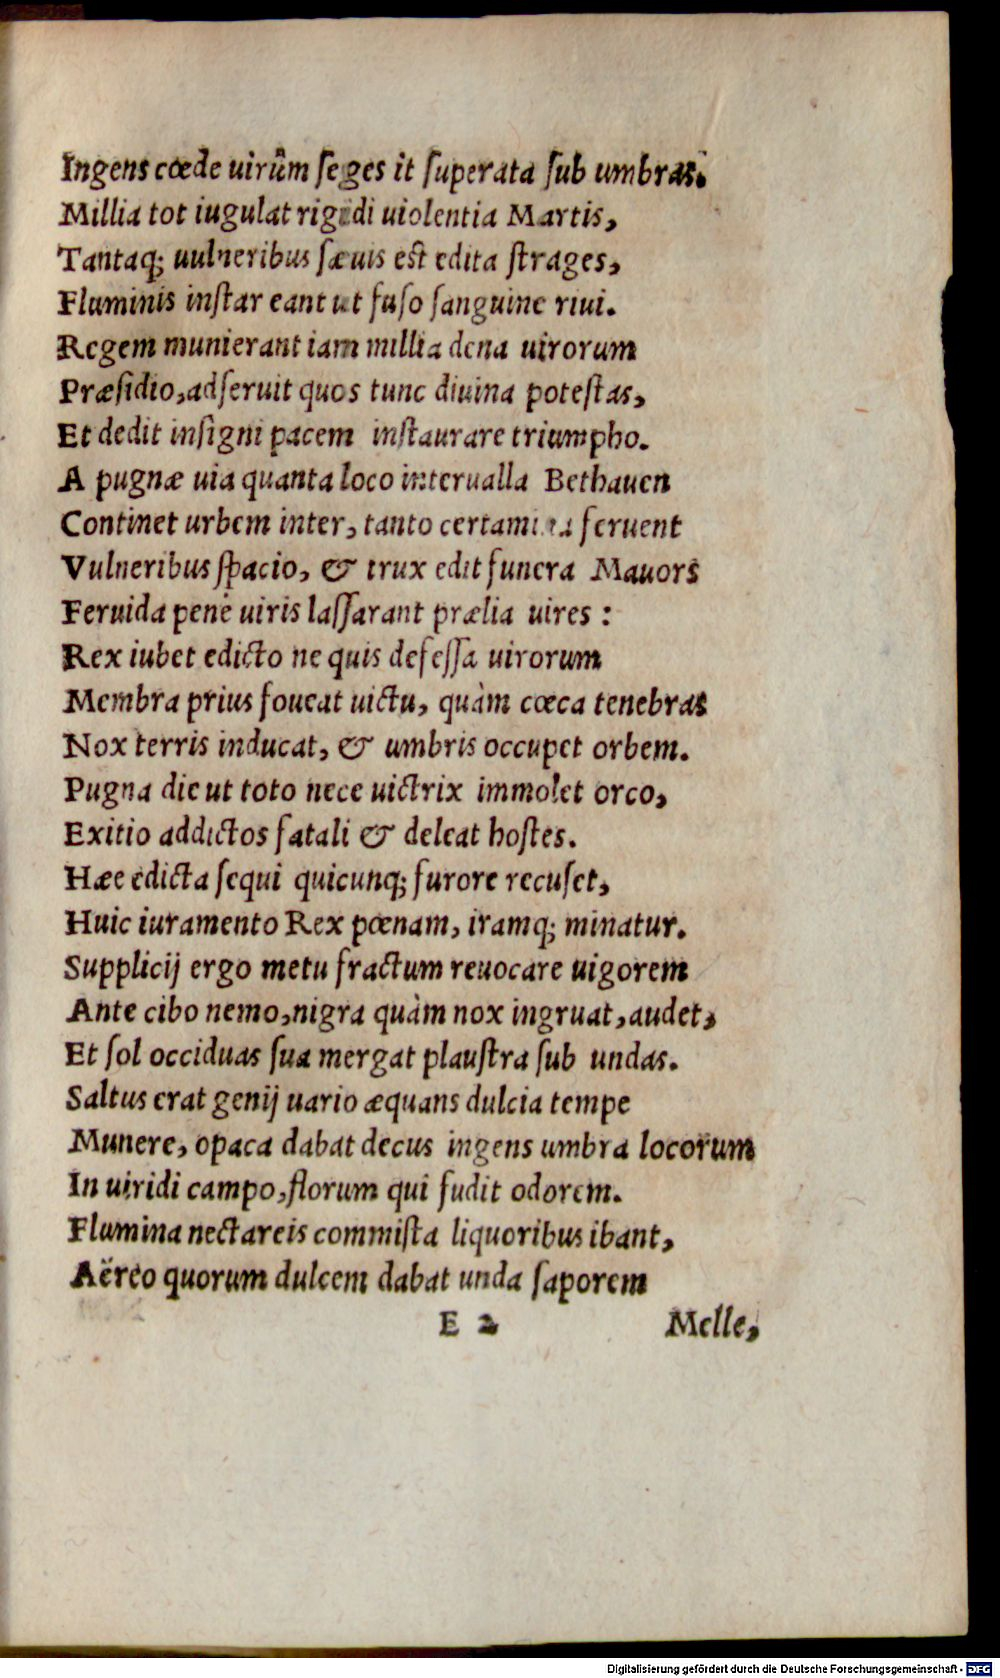 Ingens cœde uirûm seges it superata sub umbras.
Millia tot iugulat rigidi uiolentia Martis,
Tantaq; uulneribus sæuis est edita strages,
Fluminis instar eant ut fuso sanguine riui.
Regem munierant iam millia dena uirorum
Præsidio, adseruit quos tunc diuina potestas,
Et dedit insigni pacem instaurare triumpho.
A pugnæ uia quanta loco interualla Bethauen
Continet urbem inter, tanto certamina feruent
Vulneribus spacio, & trux edit funera Mauors
Feruida penè uiris lassarant prælia uires:
Rex iubet edicto ne quis defessa uirorum
Membra prius foueat uictu, quàm cœca tenebras
Nox terris inducat, & umbris occupet orbem.
Pugna die ut toto nece uictrix immolet orco,
Exitio addictos fatali & deleat hostes.
Hæe edicta sequi quicunq; furore recuset,
Huic iuramento Rex pœnam, iramq; minatur.
Supplicij ergo metu fractum reuocare uigorem
Ante cibo nemo, nigra quàm nox ingruat, audet,
Et sol occiduas sua mergat plaustra sub undas.
Saltus erat genij uario æquans dulcia tempe
Munere, opaca dabat decus ingens umbra locorum
In uiridi campo, florum qui fudit odorem.
Flumina nectareis commista liquoribus ibant,
Aëreo quorum dulcem dabat unda saporem
E 2 Melle,
Digitalisierung gefördert durch die Deutsche Forschungsgemeinschaft - DFG